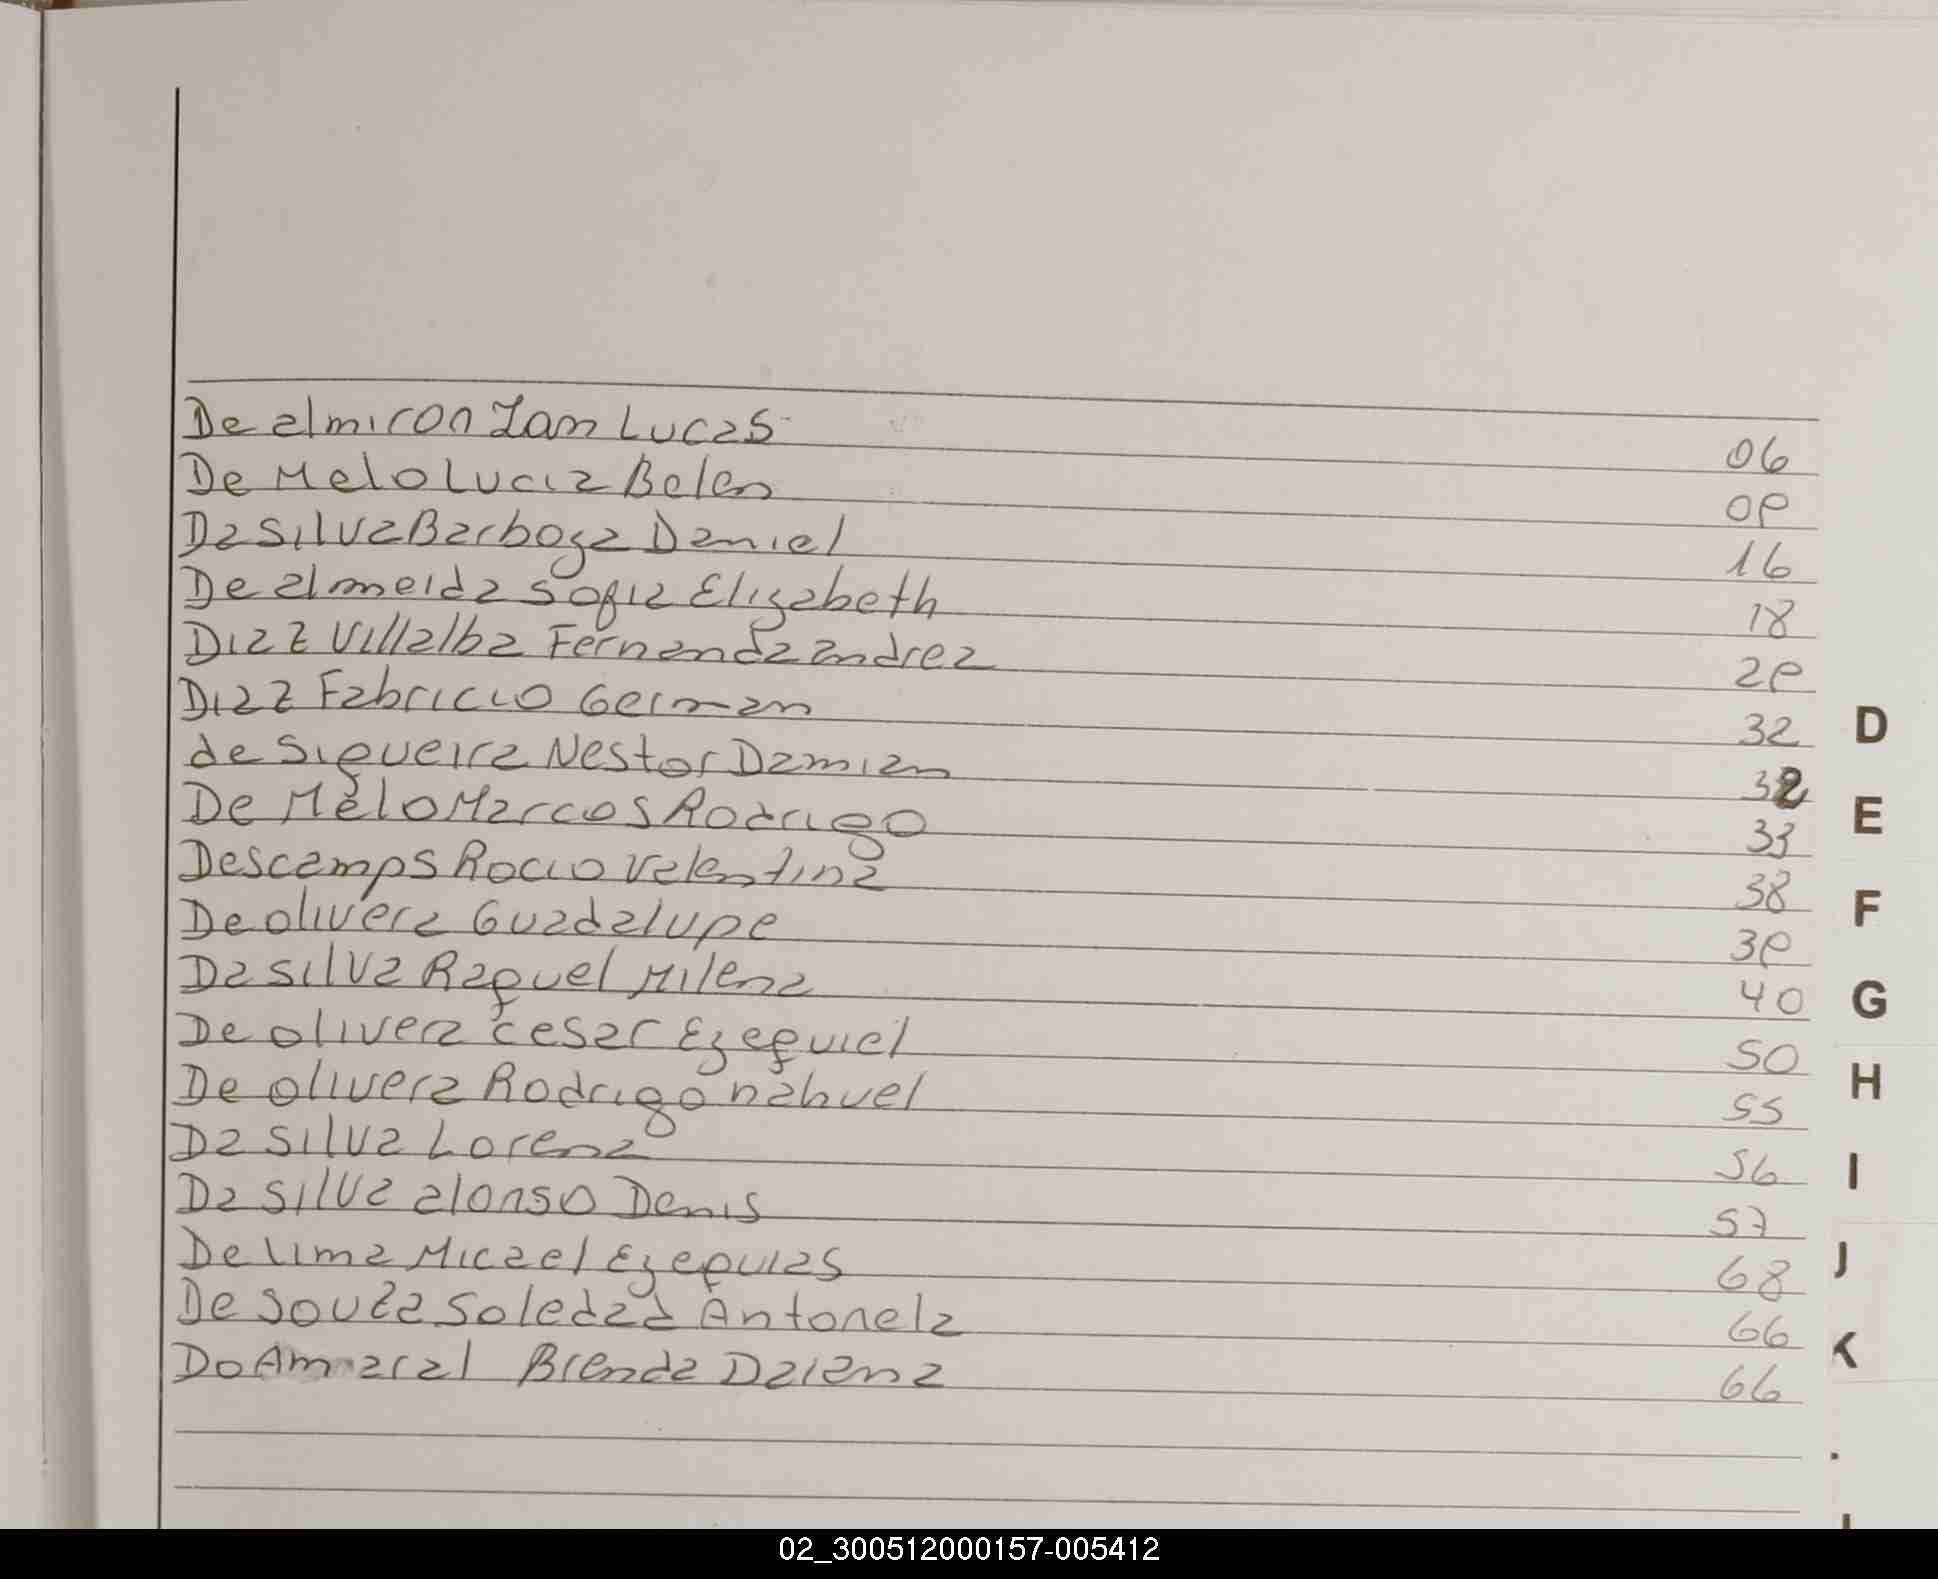 De almiron Ian Lucas 06
De Melo Lucia Belen 09
Da silva Barboza Daniel 16
De almeida Sofia Elizabeth 18
Diaz Villalba Fernanda andrea 29
Diaz Fabricio German 32
de Siqueira Nestor Damian 32
De Melo Marcos Rodrigo 33
Descamps Rocio Valentina 38
De olivera Guadalupe 39
Da silva Raquel Milena 40
De olivera cesar Ezequiel 50
De olivera Rodrigo nahuel 55
Da silva Lorena 56
Da silva alonso Denis 57
De lima Micael Ezequias 68
De Souza Soledad Antonela 66
Do Amaral Brenda Daiana 66
D
E
F
G
H
I
J
K
02_300512000157-005412